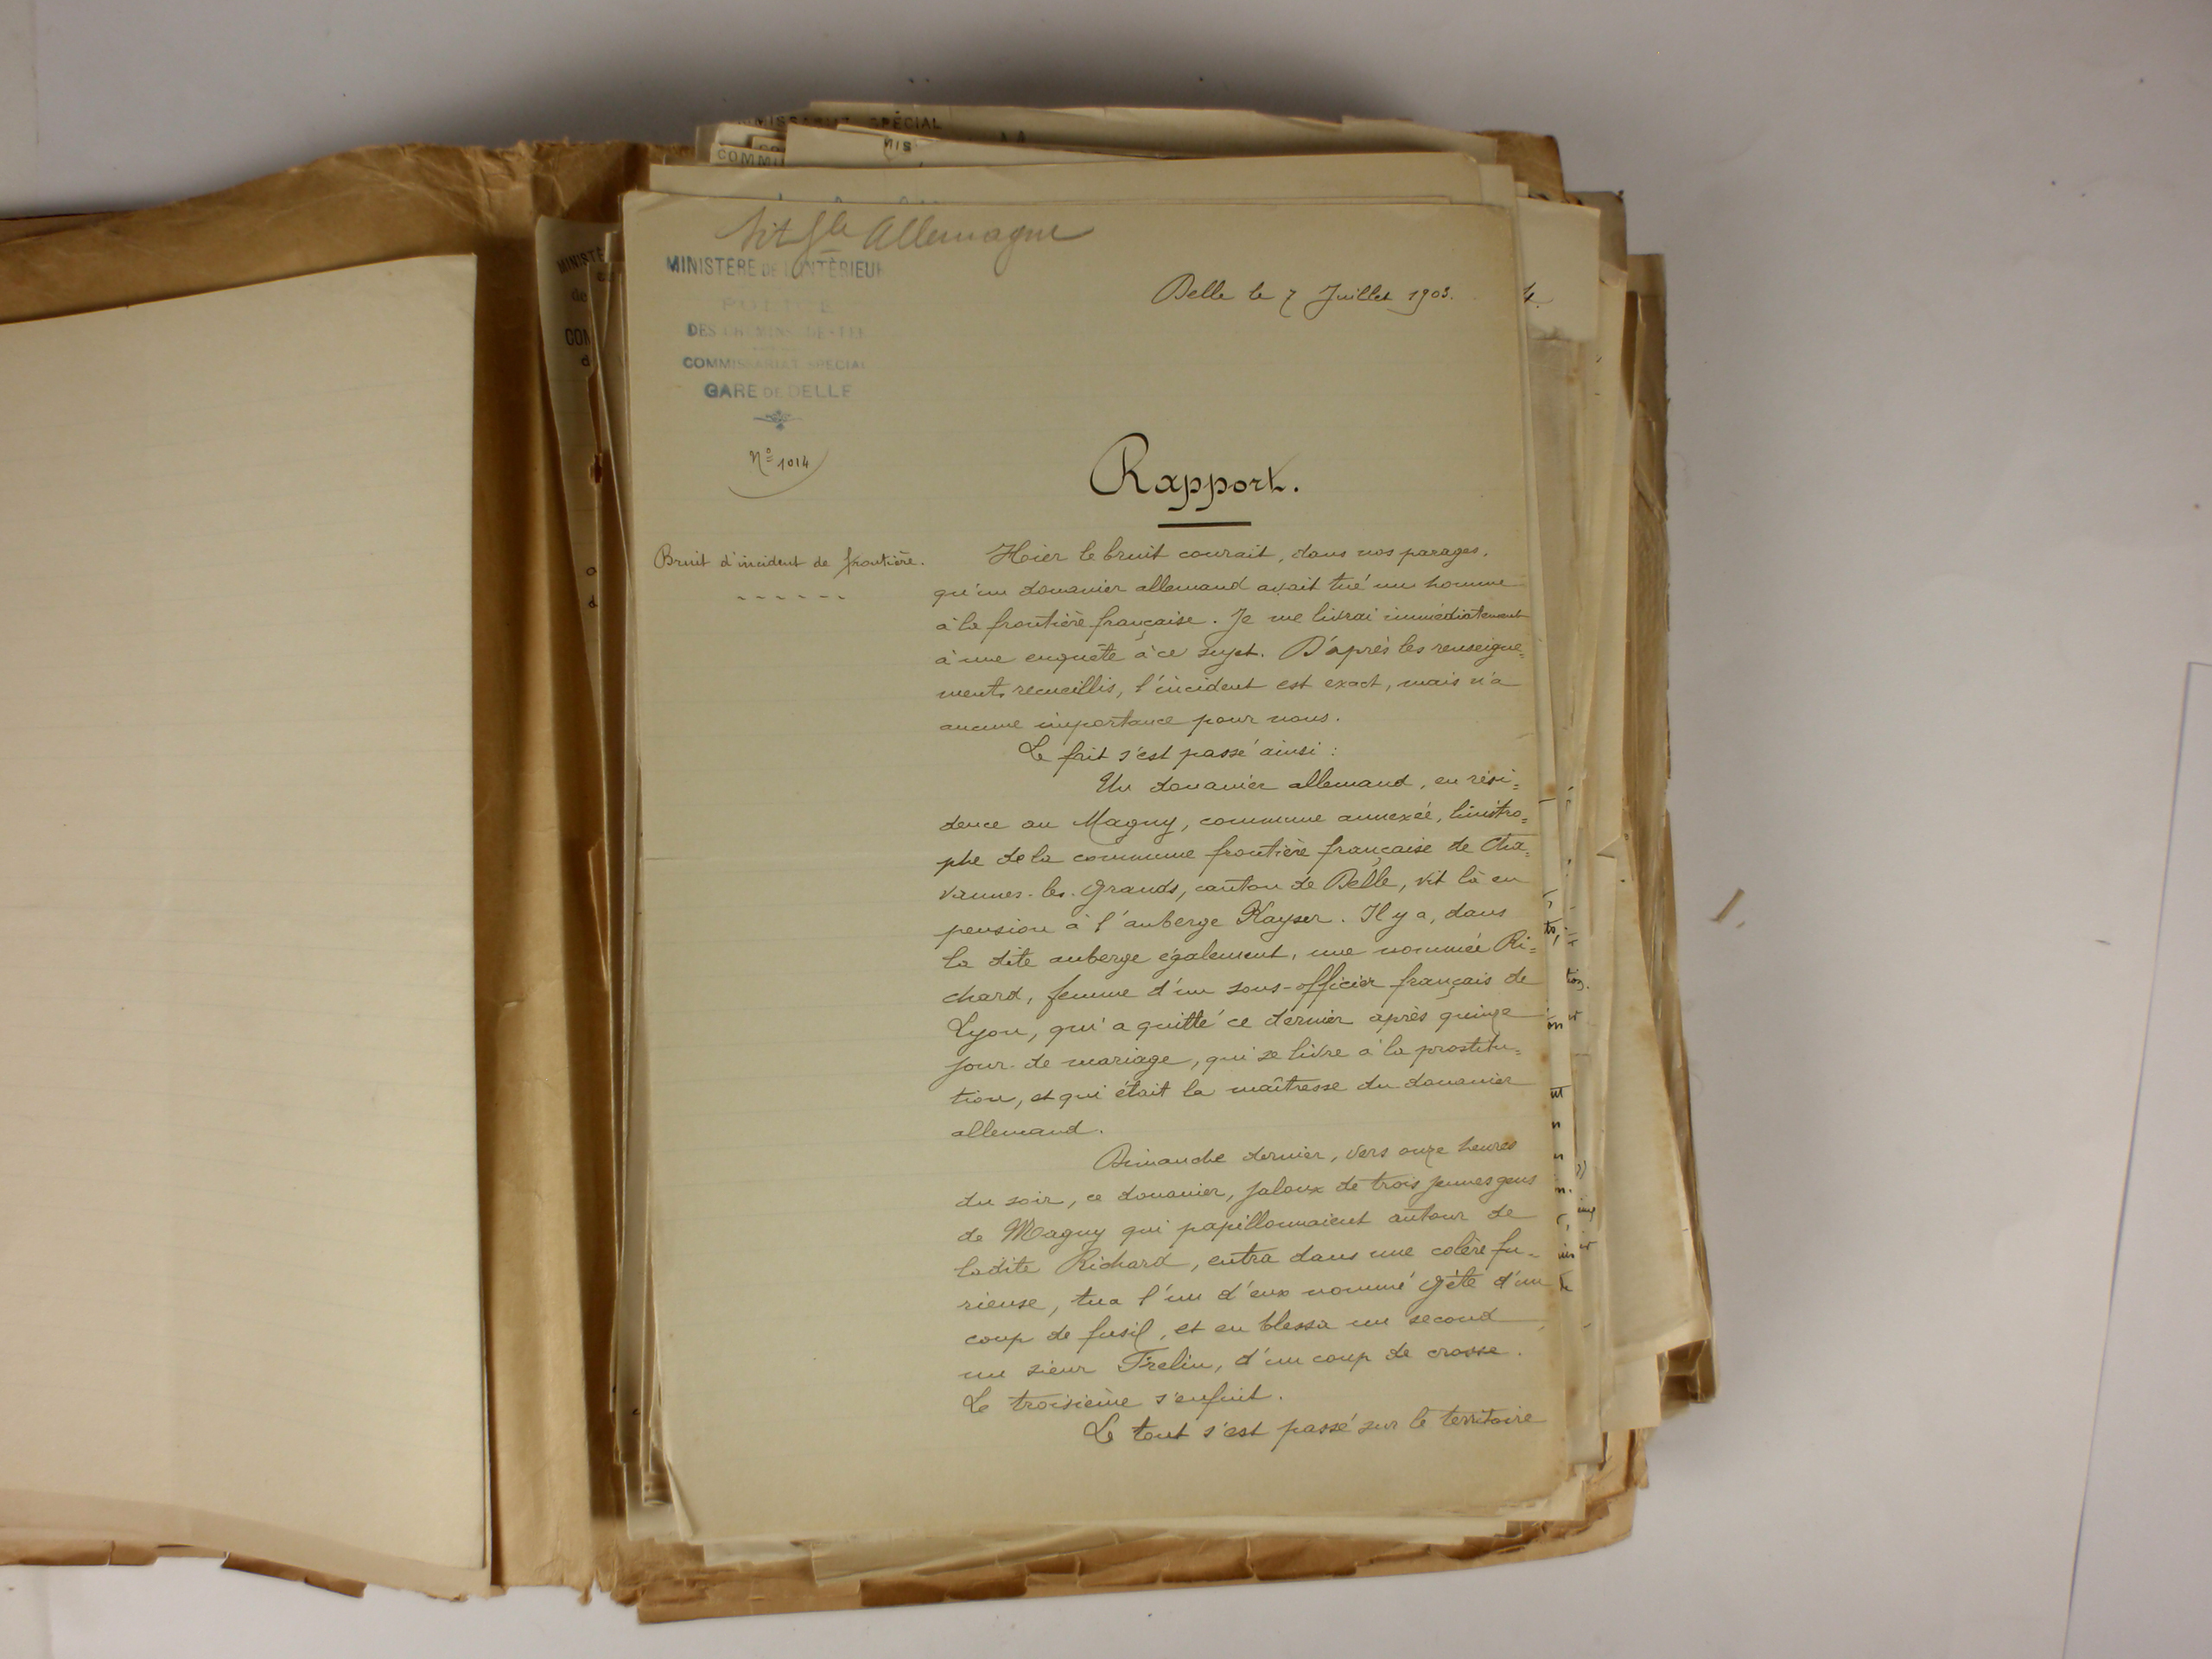 MMISSARIAT SPÉCIAL
COMMI
MIS
Sit Gle Allemagne
MINISTÈRE DE L'INTÉRIEUR
POLICE
DES CHEMINS DE FER
COMMISSARIAT SPÉCIAL
GARE DE DELLE
Nº 1014
Delle le 7 Juillet 1903.
Rapport.
Bruit d'incident de frontière.
Hier le bruit courait, dans nos parages,
qu'un douanier allemand avait tué un homme
à la frontière française. Je me livrai immédiatement
à une enquête à ce sujet. D'après les renseigne=
ments recueillis, l'incident est exact, mais n'a
aucune importance pour nous.
Le fait s'est passé ainsi :
Un douanier allemand, en rési=
dence au Magny, commune annexée, limitro=
phe de la commune frontière française de Cha=
vannes-les-Grands, canton de Delle, vit là en
pension à l'auberge Kayser. Il y a, dans
la dite auberge également, une nommée Ri=
chard, femme d'un sous-officier français de
Lyon, qui a quitté ce dernier après quinze
jours de mariage, qui se livre à la prostitu=
tion, et qui était la maîtresse du douanier
allemand.
Dimanche dernier, vers onze heures
du soir, ce douanier, jaloux de trois jeunes gens
de Magny qui papillonnaient autour de
ladite Richard, entra dans une colère fu=
rieuse, tua l'un d'eux nommé Gété d'un
coup de fusil, et en blessa un second
un sieur Frelin, d'un coup de crosse.
Le troisième s'enfuit.
Le tout s'est passé sur le territoire